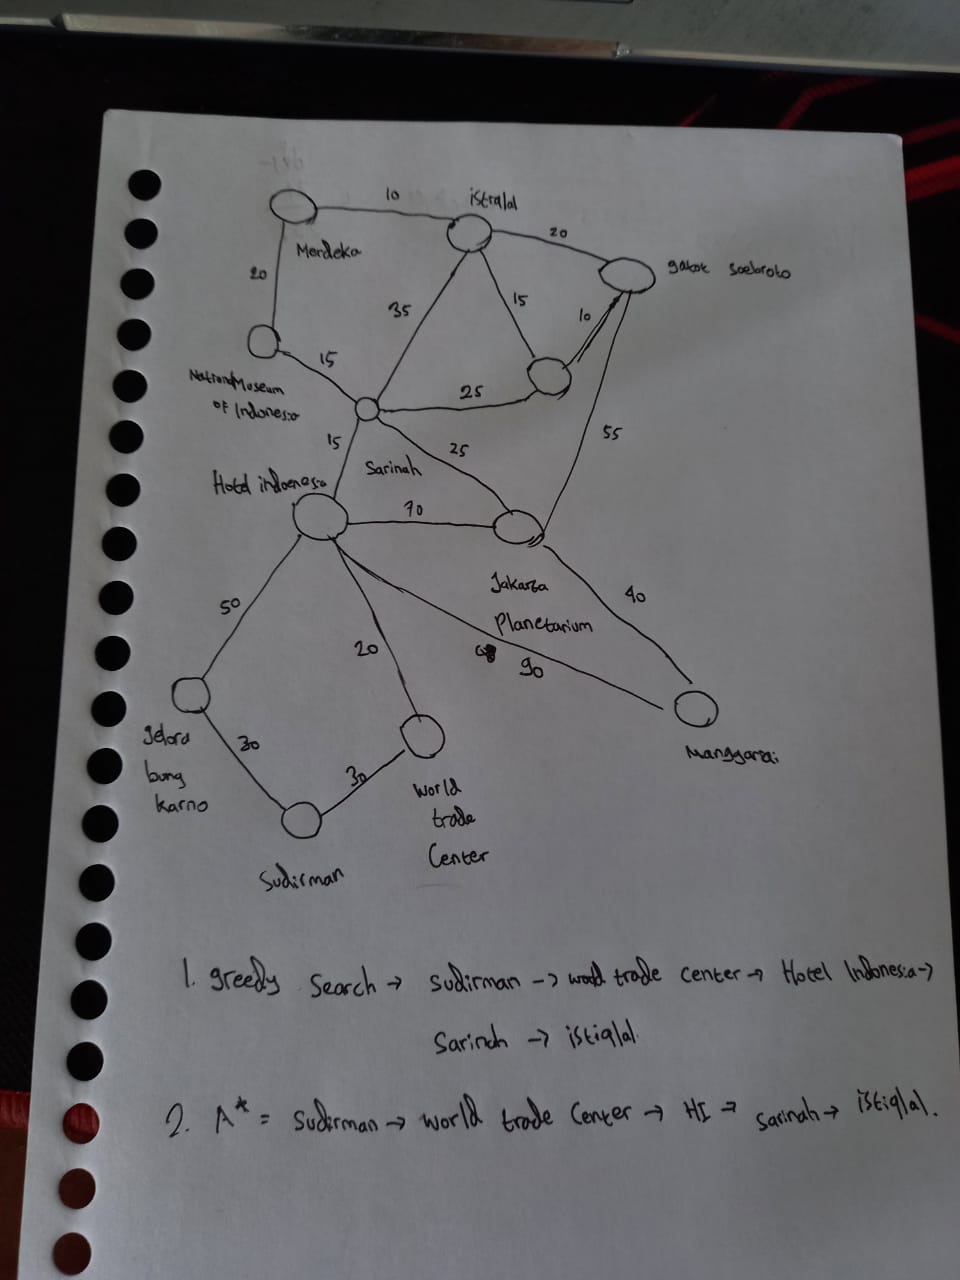 10
istiqlal
20
Merdeka
gatot Soebroto
20
35
15
10
15
National Museum
of Indonesia
25
55
15
25
Sarinah
Hotel indoenesia
70
Jakarta
Planetarium
40
50
20
90
gelora
bung
karno
30
30
World
trade
Center
Manggarai
Sudirman
1. greedy Search → Sudirman → world trade center → Hotel Indonesia →
Sarinah → istiqlal.
2. A* = Sudirman → world trade Center → HI → Sarinah → istiqlal.